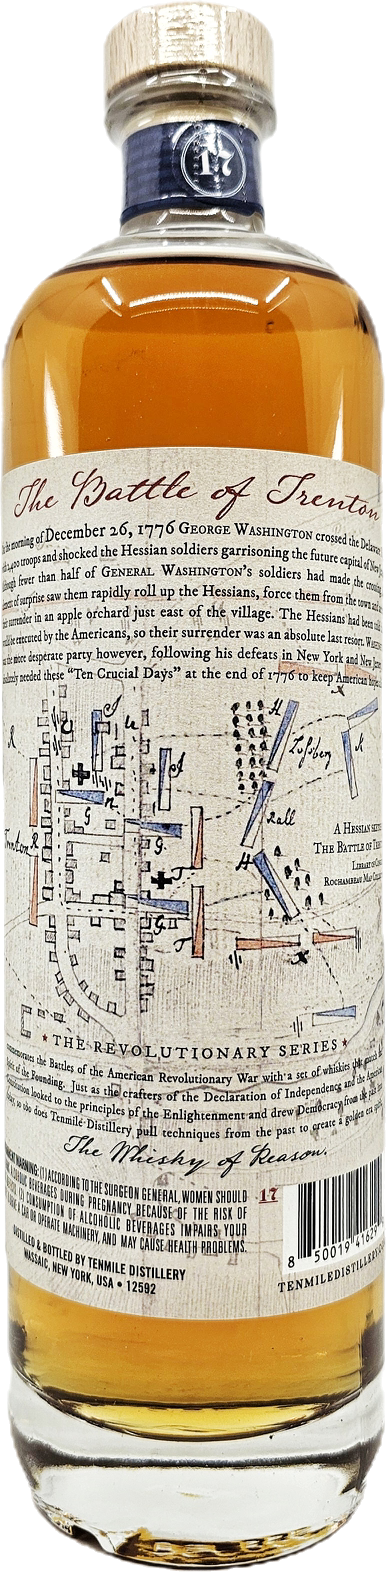 17
The Battle of Trenton
the morning of December 26, 1776 GEORGE WASHINGTON crossed the Delaware
2,400 troops and shocked the Hessian soldiers garrisoning the future capital of New
fewer than half of GENERAL WASHINGTON'S soldiers had made the crossing,
of surprise saw them rapidly roll up the Hessians, force them from the town and
surrender in an apple orchard just east of the village. The Hessians had been told
be executed by the Americans, so their surrender was an absolute last resort.
the more desperate party however, following his defeats in New York and New Jersey
needed these “Ten Crucial Days” at the end of 1776 to keep American
R
H
Loßberg
K
n
G
Trenton R
Rall
G
H
A HESSIAN
THE BATTLE OF
LIBRARY OF
ROCHAMBEAU MAP
T
G
T
★ THE REVOLUTIONARY SERIES ★
the Battles of the American Revolutionary War with a set of whiskies that
of the Founding. Just as the crafters of the Declaration of Independence and the American
looked to the principles of the Enlightenment and drew Democracy from the
so too does Tenmile Distillery pull techniques from the past to create a golden era
The Whisky of Reason.
WARNING: (1) ACCORDING TO THE SURGEON GENERAL, WOMEN SHOULD
BEVERAGES DURING PREGNANCY BECAUSE OF THE RISK OF
(2) CONSUMPTION OF ALCOHOLIC BEVERAGES IMPAIRS YOUR
A CAR OR OPERATE MACHINERY, AND MAY CAUSE HEALTH PROBLEMS.
17
DISTILLED & BOTTLED BY TENMILE DISTILLERY
WASSAIC, NEW YORK, USA • 12592
8 50019 41629
TENMILEDISTILLERY